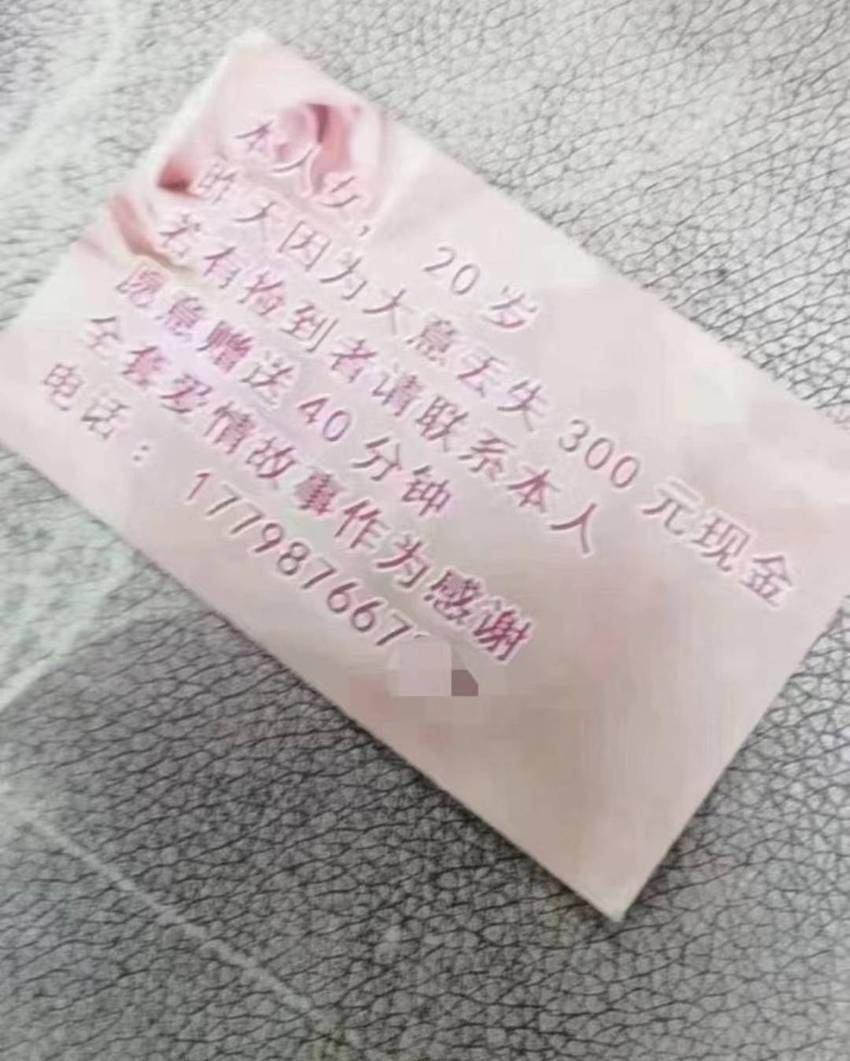 本人女， 20 岁
昨天因为大意丢失 300 元现金
若有捡到者请联系本人
愿意赠送 40 分钟
全套爱情故事作为感谢
电话： 177987667